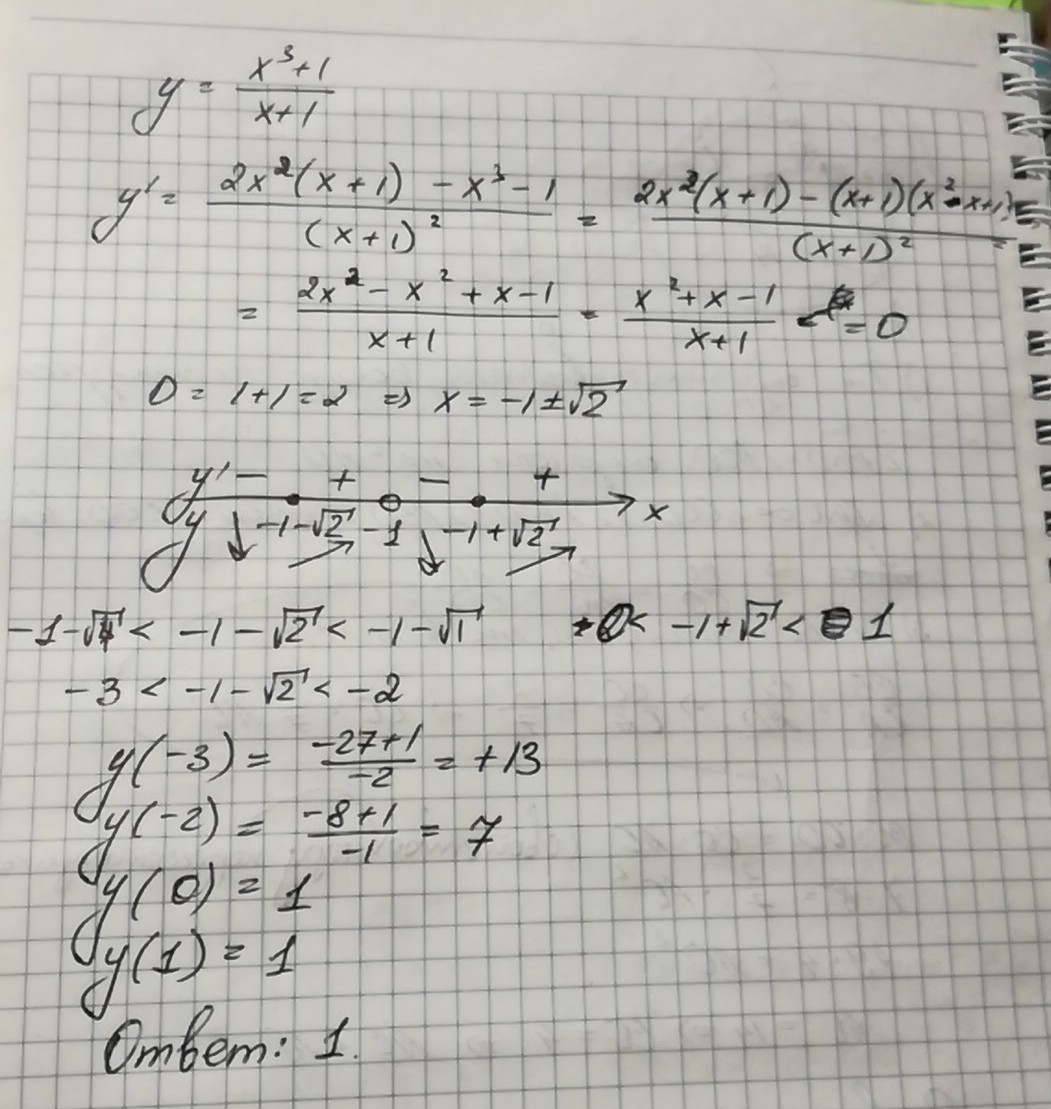 y = (x³+1)/(x+1)
y' = (2x²(x+1) - x³ - 1)/(x+1)² = (2x²(x+1) - (x+1)(x²-x+1))/(x+1)² =
= (2x² - x² + x - 1)/(x+1) = (x² + x - 1)/(x+1) = 0
D = 1+1 = 2 ⇒ x = -1 ± √2
y' - + - +
y -1-√2 -1 -1+√2 x
-1-√4 < -1-√2 < -1-√1 0 < -1+√2 < 1
-3 < -1-√2 < -2
y(-3) = (-27+1)/(-2) = +13
y(-2) = (-8+1)/(-1) = 7
y(0) = 1
y(1) = 1
Ответ: 1.